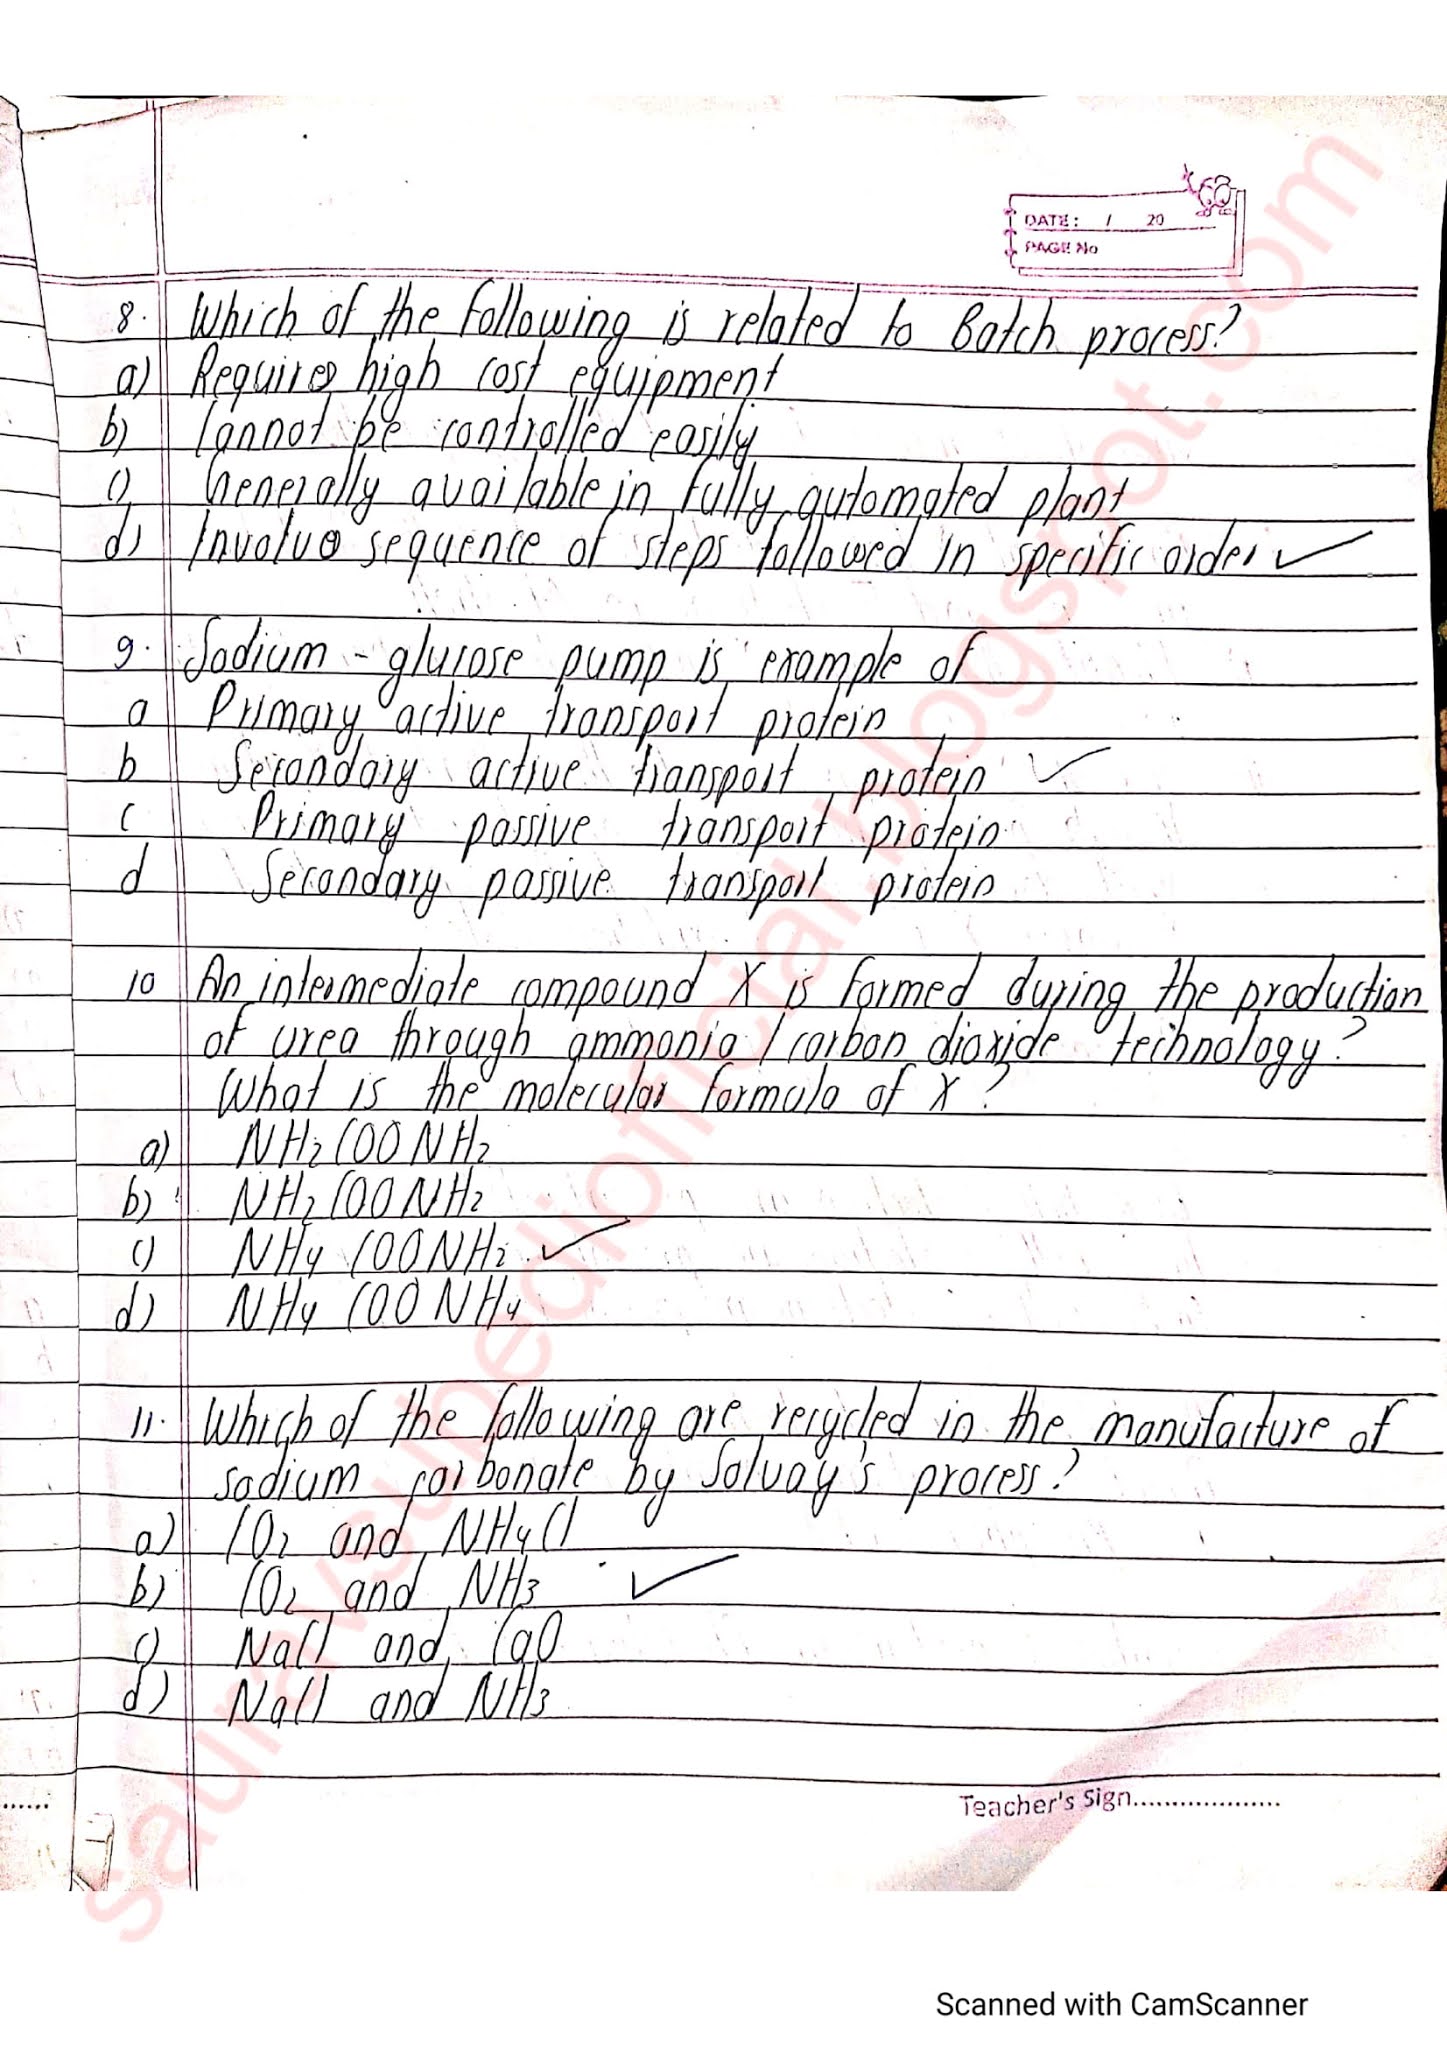 DATE: / 20
PAGE No
8. Which of the following is related to Batch process?
a) Requires high cost equipment
b) Cannot be controlled easily
c) Generally available in fully automated plant
d) Involve sequence of steps followed in specific order ✓
9. Sodium - glucose pump is example of
a Primary active transport protein
b Secondary active transport protein ✓
c Primary passive transport protein
d Secondary passive transport protein
10 An intermediate compound X is formed during the production
of urea through ammonia / carbon dioxide technology?
What is the molecular formula of X?
a) NH2COONH2
b) NH2COONH2
c) NH4COONH2 ✓
d) NH4COONH4
11. Which of the following are recycled in the manufacture of
sodium carbonate by Solvay's process?
a) CO2 and NH4Cl
b) CO2 and NH3 ✓
c) NaCl and CaO
d) NaCl and NH3
Teacher's Sign....................
sauravsunediofficial.blogspot.com
Scanned with CamScanner